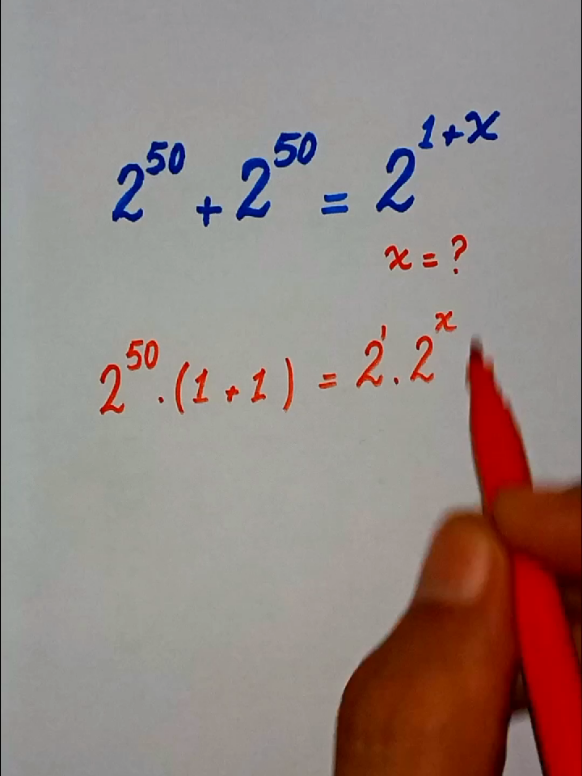 2⁵⁰ + 2⁵⁰ = 2¹⁺ˣ
x = ?
2⁵⁰ . (1 + 1) = 2¹ . 2ˣ